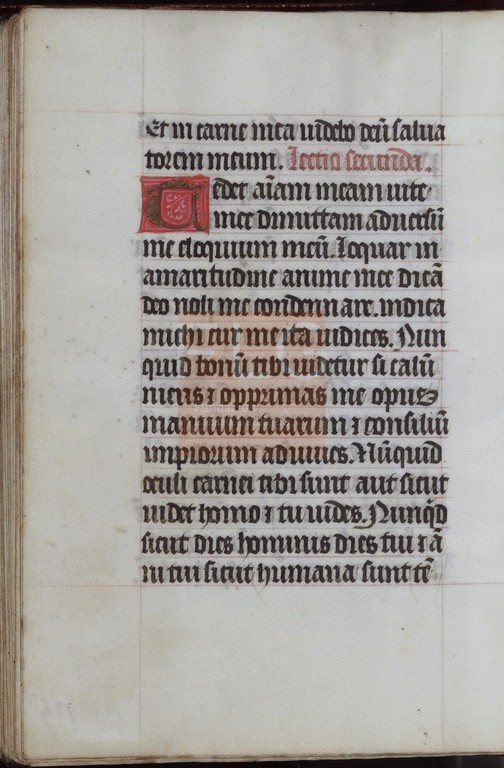 Et in carne mea videbo deū salua
torem meum. Lectio secunda.
Tedet aīam meam uite
mee dimittam aduersū
me eloquium meū. loquar in
amaritudine anime mee dicā
deo noli me condempnare. indica
michi cur me ita iudices. Nun
quid bonū tibi uidetur si calū
nieris ⁊ opprimas me opus
manuum tuarum ⁊ consiliū
impiorum adiuues. Nūquid
oculi carnei tibi sunt aut sicut
uidet homo ⁊ tu uides. Nunqͥd
sicut dies hominis dies tui ⁊ ā
ni tui sicut humana sunt tē